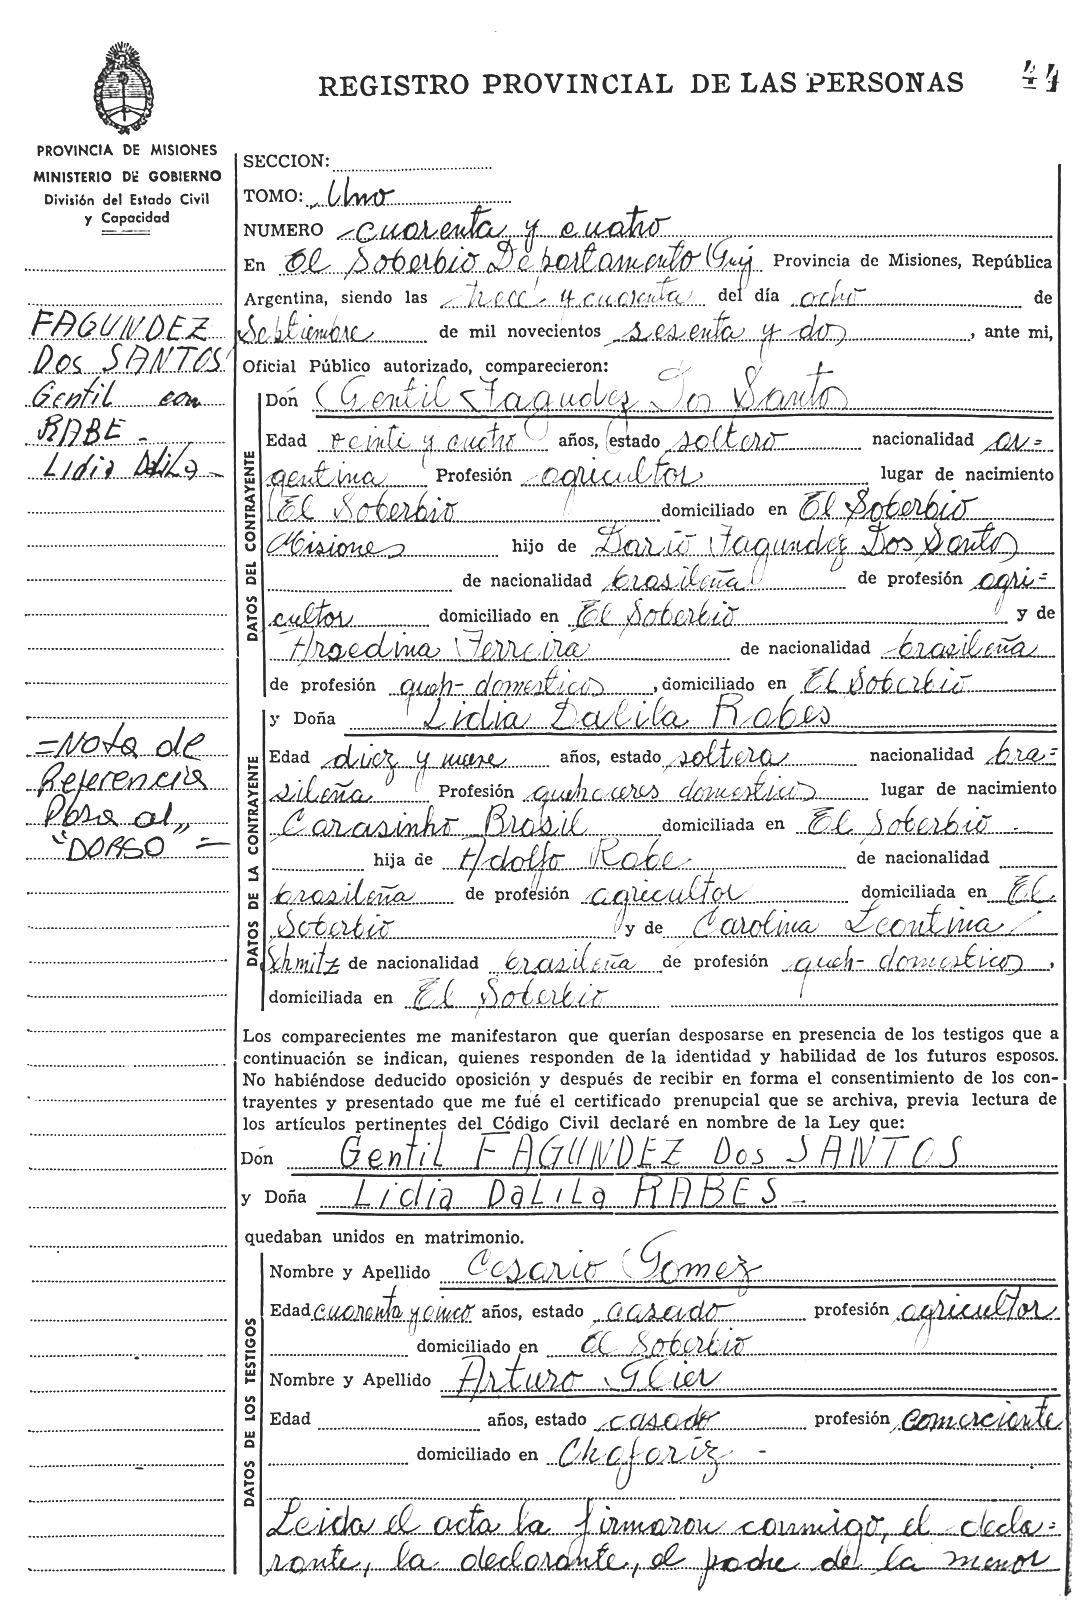 REGISTRO PROVINCIAL DE LAS PERSONAS 44
PROVINCIA DE MISIONES
MINISTERIO DE GOBIERNO
División del Estado Civil
y Capacidad
FAGUNDEZ
Dos SANTOS
Gentil con
RABE -
Lidia DaliLa -
=Nota de
Referencia
Pasa al,,
"DORSO =
SECCION:
TOMO: Uno
NUMERO cuarenta y cuatro
En El Soberbio Departamento Guj Provincia de Misiones, República
Argentina, siendo las trece y cuarenta del día ocho de
Septiembre de mil novecientos sesenta y dos, ante mi,
Oficial Público autorizado, comparecieron:
DATOS DEL CONTRAYENTE
Don Gentil Fagudez Dos Santos
Edad veinte y cuatro años, estado soltero nacionalidad ar=
gentina Profesión agricultor lugar de nacimiento
El Soberbio domiciliado en El Soberbio
Misiones hijo de Dario Fagundez Dos Santos
de nacionalidad brasileña de profesión agri=
cultor domiciliado en El Soberbio y de
Ferreira de nacionalidad brasileña
de profesión queh- domesticos, domiciliado en El Soberbio
DATOS DE LA CONTRAYENTE
y Doña Lidia Dalila Rabes
Edad diez y nueve años, estado soltera nacionalidad bra=
sileña Profesión quehaceres domesticos lugar de nacimiento
Carasinho Brasil domiciliada en El Soberbio -
hija de Adolfo Rabe de nacionalidad
brasileña de profesión agricultor domiciliada en El
Soberbio y de Carolina Leontina
Schmitz de nacionalidad brasileña de profesión queh- domesticos,
domiciliada en El Soberbio
Los comparecientes me manifestaron que querían desposarse en presencia de los testigos que a
continuación se indican, quienes responden de la identidad y habilidad de los futuros esposos.
No habiéndose deducido oposición y después de recibir en forma el consentimiento de los con-
trayentes y presentado que me fué el certificado prenupcial que se archiva, previa lectura de
los artículos pertinentes del Código Civil declaré en nombre de la Ley que:
Don Gentil FAGUNDEZ Dos SANTOS
y Doña Lidia DaLiLa RABES -
quedaban unidos en matrimonio.
DATOS DE LOS TESTIGOS
Nombre y Apellido Cesario Gomez
Edad cuarenta y cinco años, estado casado profesión agricultor
domiciliado en El Soberbio
Nombre y Apellido Arturo Glier
Edad años, estado casado profesión comerciante
domiciliado en Chafariz -
Leida el acta la firmaron conmigo, el decla=
rante, la declarante, el padre de la menor